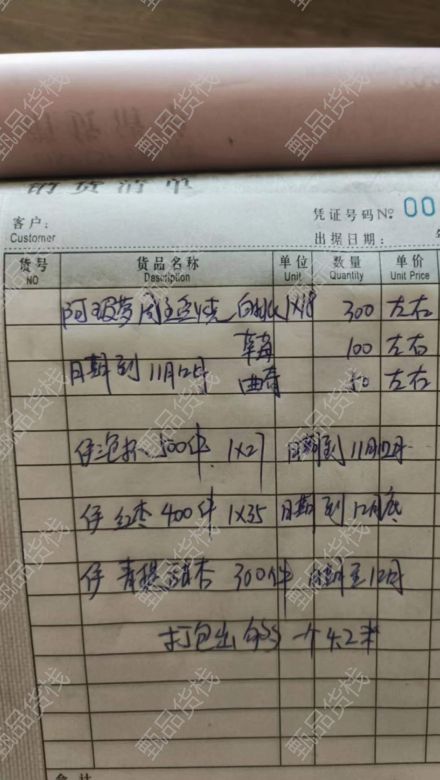 销货清单
客户：
Customer
凭证号码№ 00
出据日期：
货号 NO 货品名称 Description 单位 Unit 数量 Quantity 单价 Unit Price
白 1X18 300 左右
草莓 100 左右
日期到 11月12月 曲奇 50 左右
伊 500件 1X27 日期到 11月12月
伊 红枣 400件 1X35 日期到 12月底
伊 青提 300件 日期至12月
打包出 一个4.2米
合计
甄品货栈